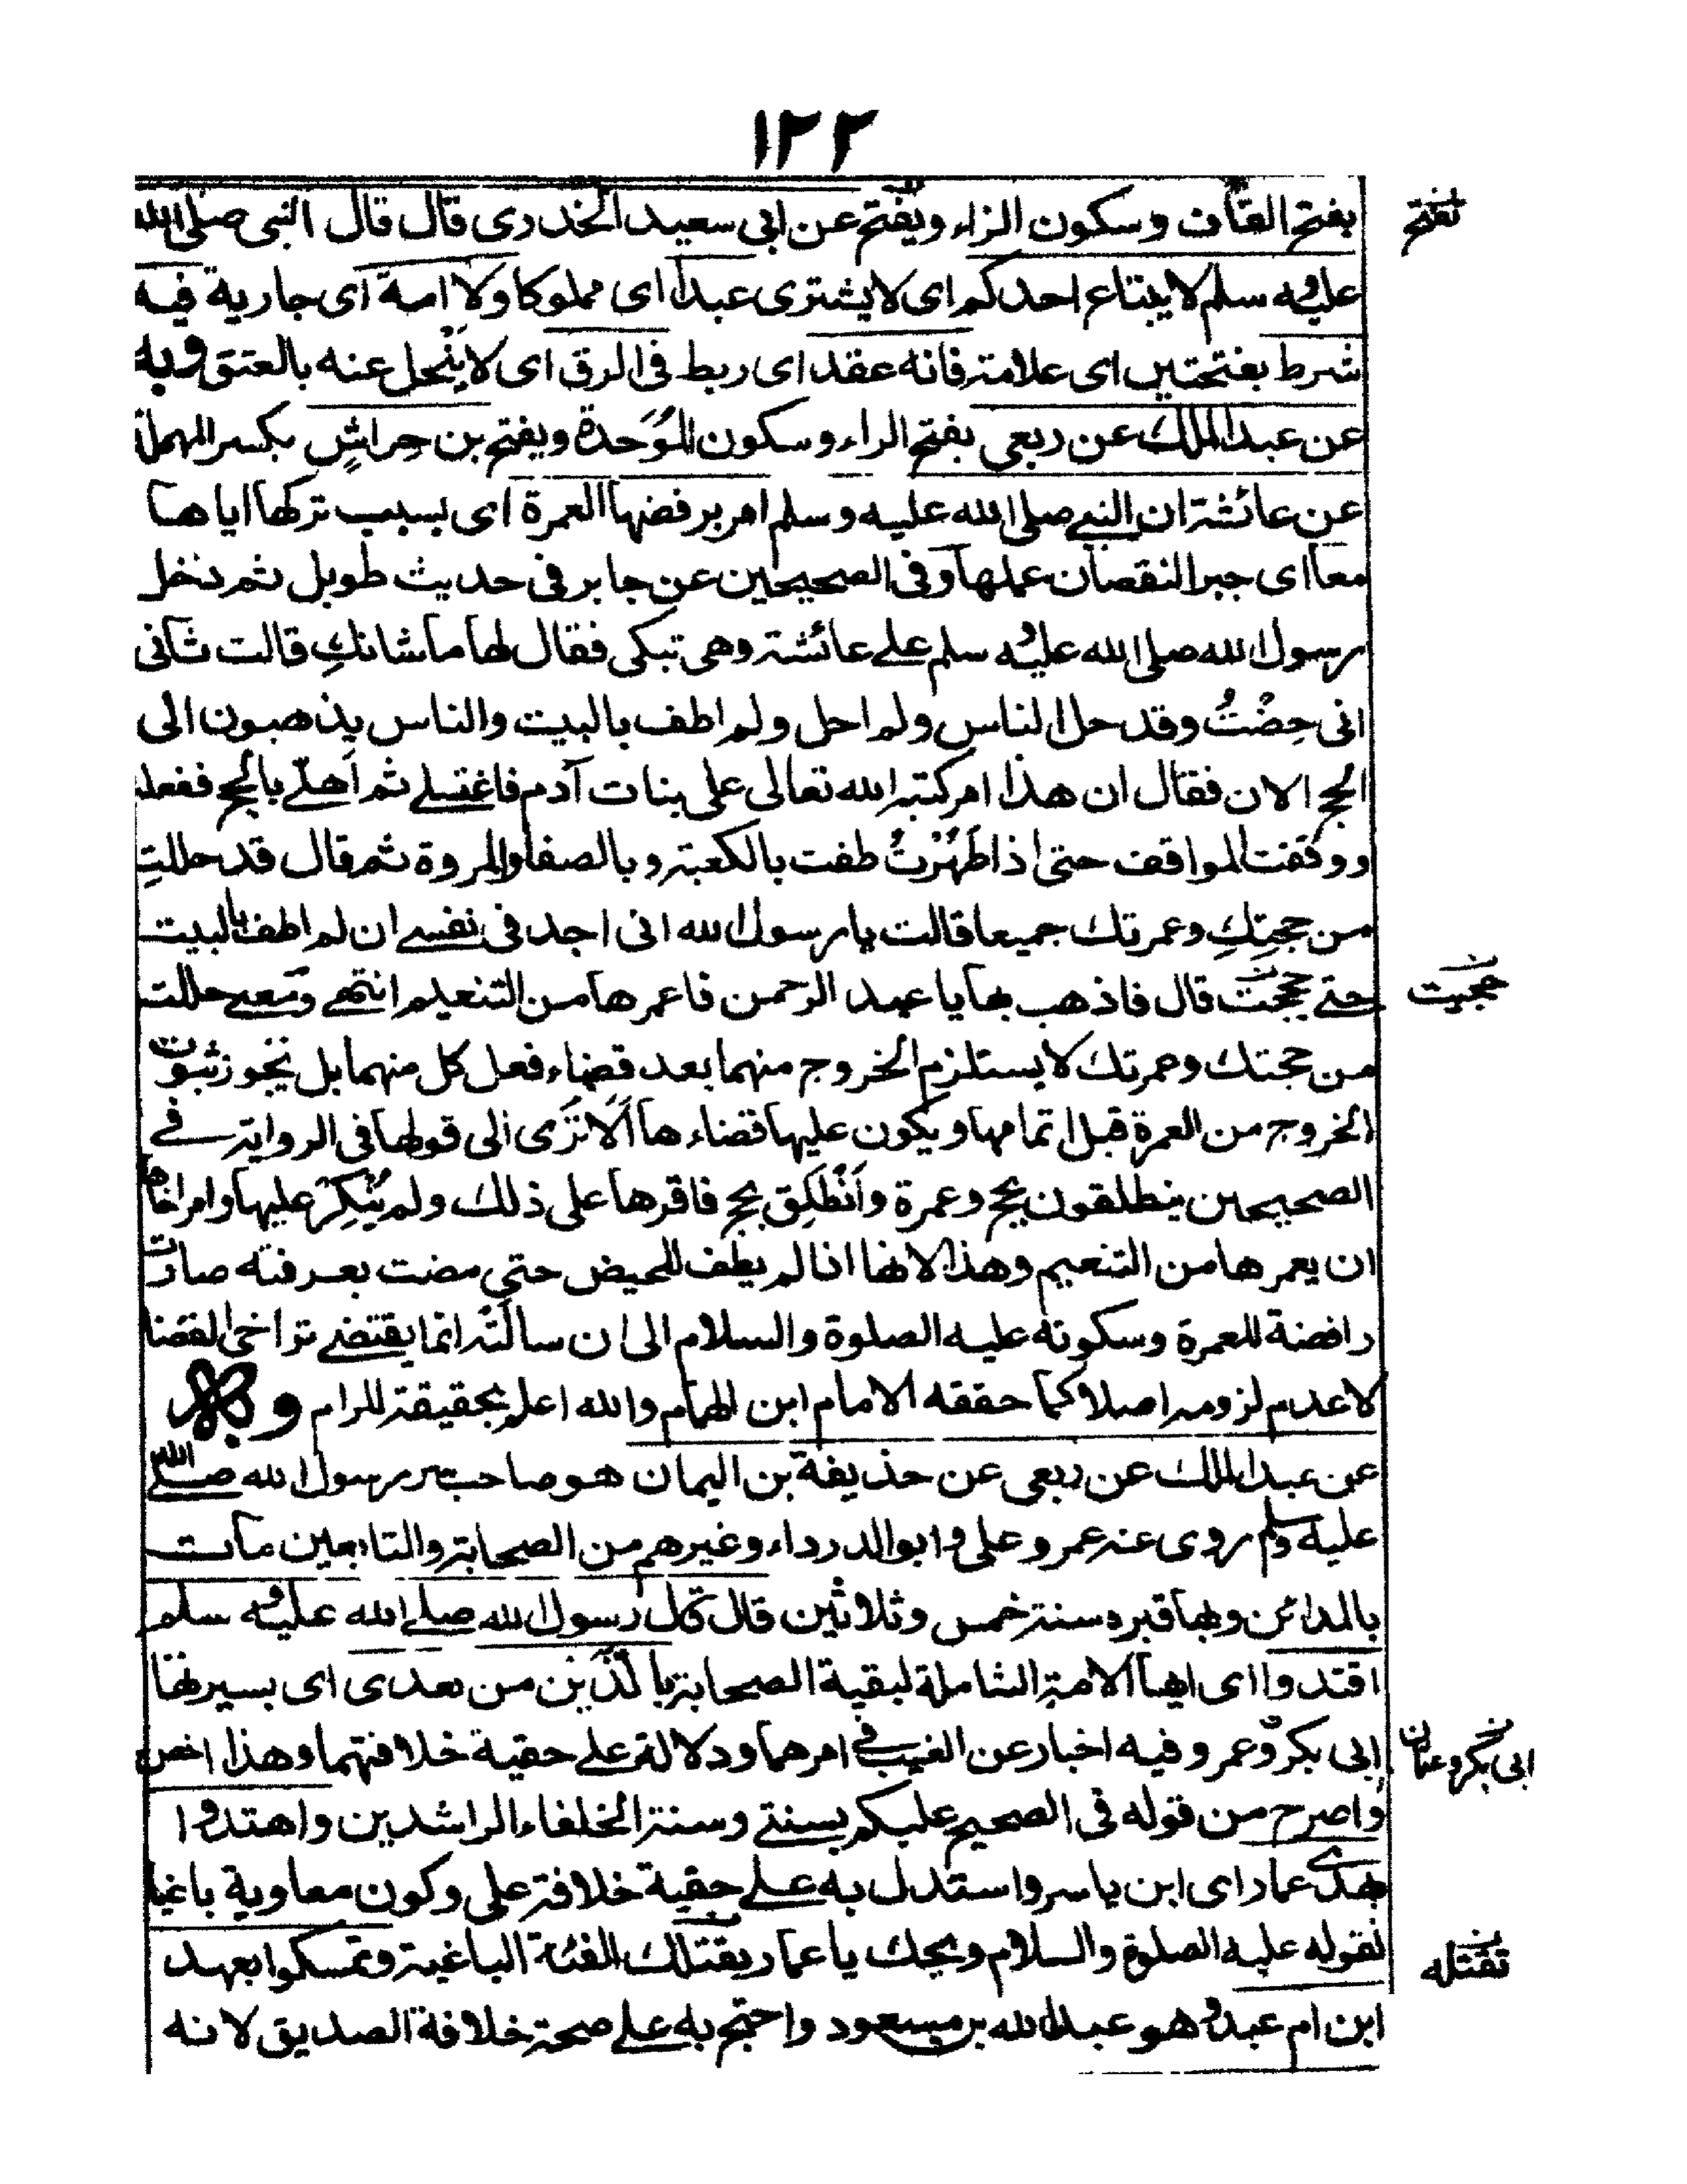 ١٢٢
بفتح القاف وسكون الزاء ويفتح عن ابى سعيد الخدرى قال قال النبى صلى الله
عليه و سلم لا يبتاع احدكم اى لا يشترى عبدا اى مملوكا ولا امة اى جارية فيه
شرط بفتحتين اى علامة فانه عقد اى ربط فى الرق اى لا ينحل عنه بالعتق وبه
عن عبد الملك عن ربعى بفتح الراء وسكون الموَحدة ويفتح بن حِراشٍ بكسر المهملة
عن عائشة ان النبے صلى الله عليه وسلم امر برفضها العمرة اى بسبب تركها اياها
معا اى جبرا لنقصان عملها وفى الصحيحين عن جابر فى حديث طويل ثم دخل
رسول الله صلى الله عليه و سلم علے عائشة وهى تبكى فقال لها ما شانكِ قالت شانى
انى حِضْتُ وقد حل الناس ولم احل ولم اطف بالبيت والناس يذهبون الى
الحج الان فقال ان هذا امر كتبه الله تعالى على بنات آدم فاغتسلے ثم اَهلّے بالحج ففعلت
ووقفت المواقف حتى اذا طَهُرْتُ طفت بالكعبة وبالصفا والمروة ثم قال قد حللتِ
من حجتِكِ وعمرتك جميعا قالت يا رسول الله انى اجد فى نفسے ان لم اطف بالبيت
حتے حججت قال فاذهب بها يا عبد الرحمن فاعمرها من التنعيم انتهے ومعنے حللت
من حجتك وعمرتك لا يستلزم الخروج منهما بعد قضاء فعل كل منهما بل يجوز ثبوت
الخروج من العمرة قبل اتمامها ويكون عليها قضاءها اَلَا تَرَى الى قولها فى الرواية فے
الصحيحين ينطلقون بحج وعمرة واَنْطَلِق بحج فاقرها على ذلك ولم يُنْكِرْ عليها وامر اخاها
ان يعمرها من التنعيم وهذا لانها اذا لم يطف للحيض حتى مضت بعرفة صارت
رافضة للعمرة وسكوته عليه الصلوة والسلام الى ان سالَتْه انما يقتضے تراخى القضا
لا عدم لزومه اصلا كما حققه الامام ابن الهمام والله اعلم بحقيقة المرام وبه
عن عبد الملك عن ربعى عن حذيفة بن اليمان هو صاحب سر رسول الله صلے الله
عليه وسلم روى عنه عمر وعلى وابو الدرداء وغيرهم من الصحابة والتابعين مات
بالمدائن وبها قبره سنة خمس وثلاثين قال قال رسول الله صلے الله عليه و سلم
اقتدوا اى ايها الامة الشاملة لبقية الصحابة بالَّذَين من بعدى اى بسيرتها
ابى بكر وعمر وفيه اخبار عن الغيب فے امرهما ودلالة علے حقية خلافتهما وهذا اخص
واصرح من قوله فى الصحيح عليكم بسنتے وسنة الخلفاء الراشدين واهتدوا
بهدى عمار اى ابن ياسر واستدل به علے حقية خلافة على وكون معاوية باغيا
لقوله عليه الصلوة والسلام ويحك يا عمار يقتلك الفئة الباغية وتمسكوا بعهد
ابن ام عبد وهو عبد الله بن مسعود واحتج به علے صحة خلافة الصديق لانه
تفتح
حججيت
ابى بكر وعثمان
تقتله